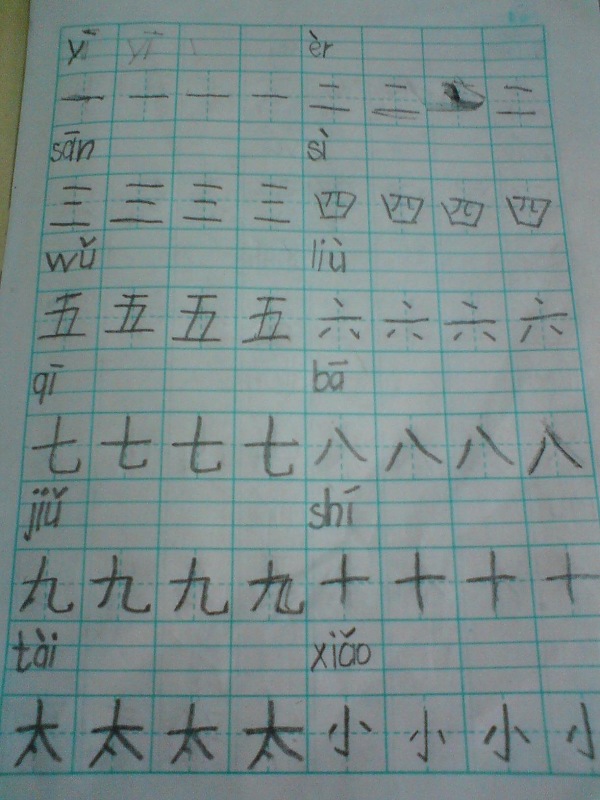 yī yī èr
一 一 一 一 二 二 二
sān sì
三 三 三 三 四 四 四 四
wǔ liù
五 五 五 五 六 六 六 六
qī bā
七 七 七 七 八 八 八 八
jiǔ shí
九 九 九 九 十 十 十 十
tài xiǎo
太 太 太 太 小 小 小 小